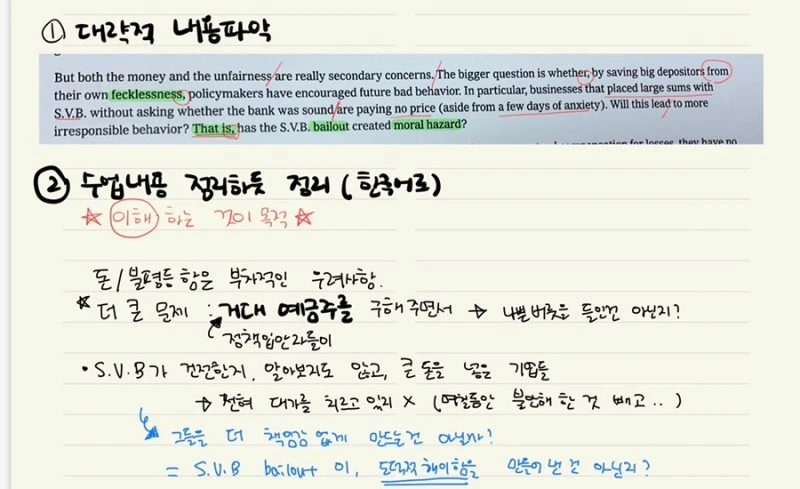 ① 대략적 내용파악
But both the money and the unfairness are really secondary concerns. The bigger question is whether, by saving big depositors from
their own fecklessness, policymakers have encouraged future bad behavior. In particular, businesses that placed large sums with
S.V.B. without asking whether the bank was sound are paying no price (aside from a few days of anxiety). Will this lead to more
irresponsible behavior? That is, has the S.V.B. bailout created moral hazard?
for losses, they have no
② 수업내용 정리하듯 정리 (한국어로)
☆ 이해 하는 것이 목적 ☆
돈/불평등함은 부차적인 우려사항.
☆ 더 큰 문제 : 거대 예금주를 구해주면서 → 나쁜버릇을 들인건 아닌지?
정책입안자들이
• S.V.B가 건전한지, 알아보지도 않고, 큰 돈을 넣은 기업들
→ 전혀 대가를 치르고 있지 × (며칠동안 불안해 한 것 빼고..)
그들을 더 책임감 없게 만드는건 아닌가?
= S.V.B bailout 이, 도덕적 해이함을 만들어 낸 건 아닌지?